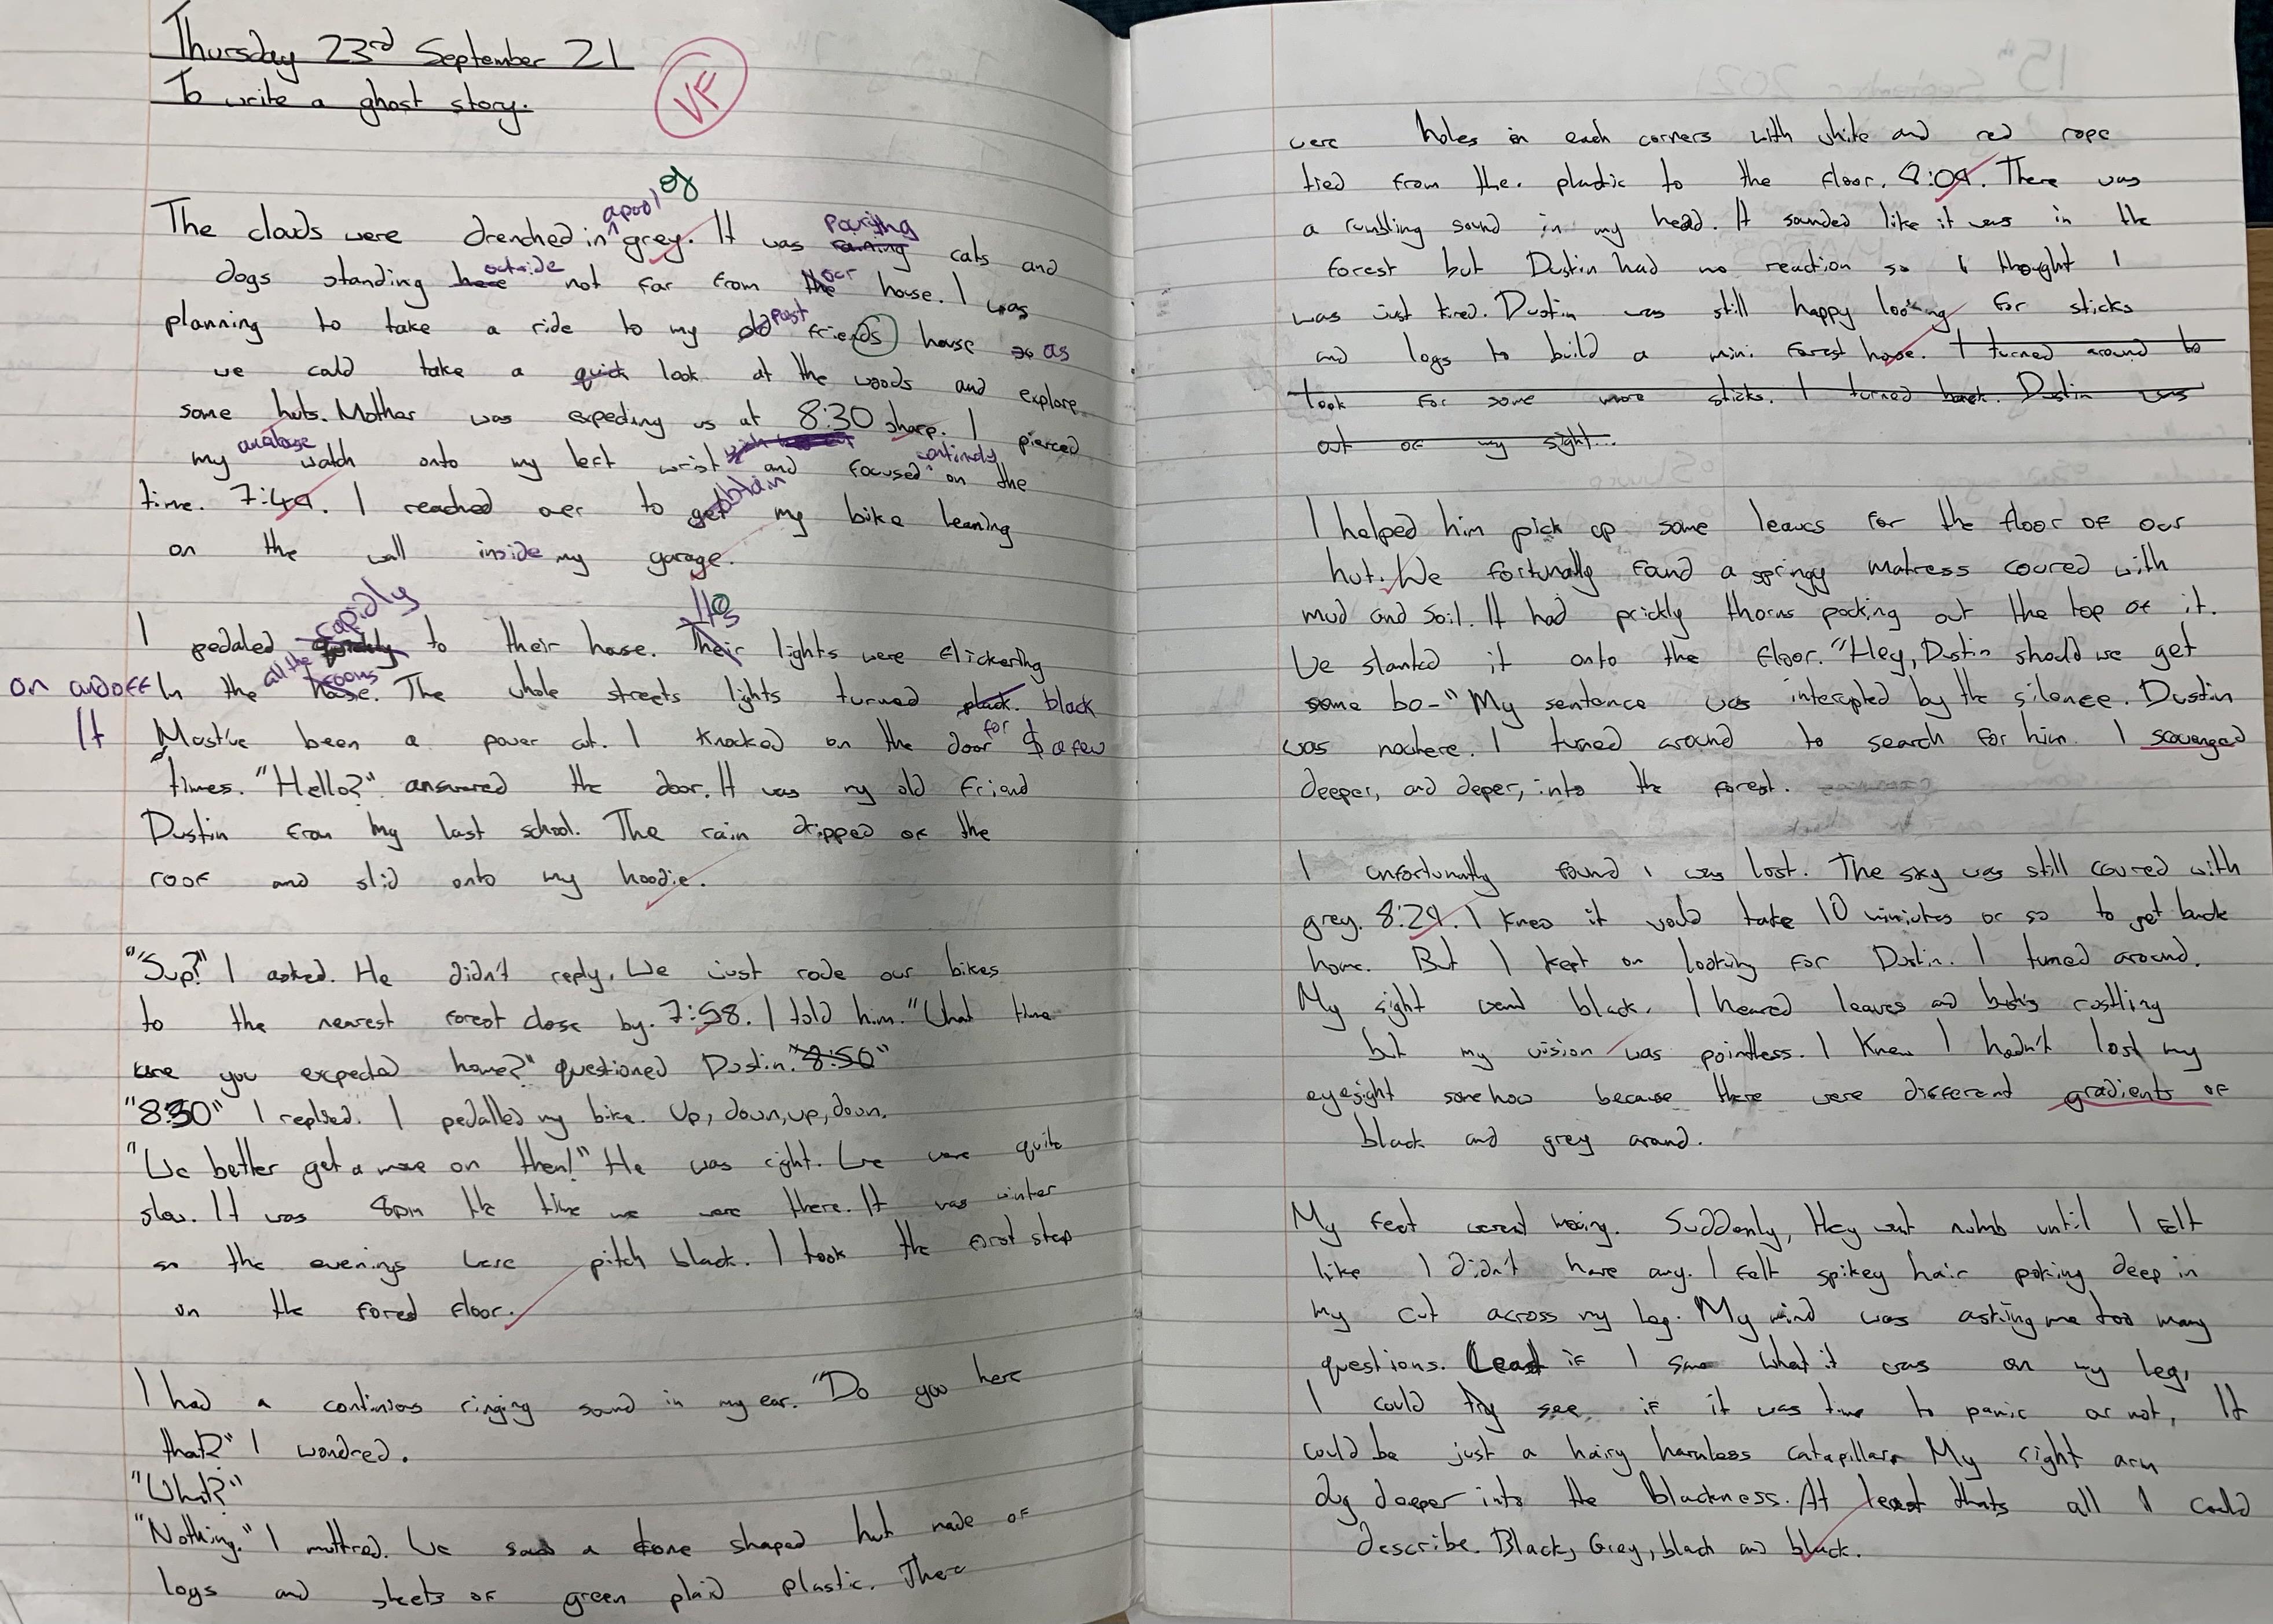 Thursday 23rd September 21
To write a ghost story.
VF
The clouds were drenched in a pool of grey. It was raining pouring cats and
dogs standing here outside not far from the our house. I was
planning to take a ride to my old past friends house so as
we could take a quick look at the woods and explore
some huts. Mother was expecting us at 8:30 sharp. I pierced
my analouge watch onto my left wrist and focused continuely on the
time. 7:49. I reached over to get obtain my bike leaning
on the wall inside my garage.
I pedaled quickly rapidly to their house. Their lights were flickering
on and off in the all the house rooms. The whole streets lights turned plack. black
It Must've been a power cut. I knocked on the door for a few
times. "Hello?" answered the door. It was my old friend
Dustin from my last school. The rain dripped of the
roof and slid onto my hoodie.
"Sup?" I asked. He didn't reply. We just rode our bikes
to the nearest forest close by. 7:58. I told him. "What time
are you expected home?" questioned Dustin. "8:50"
"8:30" I replied. I pedalled my bike. Up, down, up, down.
"We better get a move on then!" He was right. We were quite
slow. It was 8pm the time we were there. It was winter
so the evenings were pitch black. I took the first step
on the forest floor.
I had a continios ringing sound in my ear. "Do you here
that?" I wondred.
"What?"
"Nothing." I muttred. We saw a cone shaped hut made of
logs and sheets of green plaid plastic. There
were holes in each corners with white and red rope
tied from the. plastic to the floor. 8:09. There was
a rumbling sound in my head. It sounded like it was in the
forest but Dustin had no reaction so I thought I
was just tired. Dustin was still happy looking for sticks
and logs to build a mini forest house. I turned around to
look for some more sticks. I turned back. Dustin was
out of my sight...
I helped him pick up some leaves for the floor of our
hut. We fortunatly found a springy matress coured with
mud and soil. It had prickly thorns pocking out the top of it.
We slanted it onto the floor. "Hey, Dustin should we get
some bo-" My sentence was interupted by the silence. Dustin
was nowhere. I turned around to search for him. I scavenged
deeper, and deper, into the forest.
I unfortunatly found I was lost. The sky was still coured with
grey. 8:29. I knew it would take 10 miniutes or so to get back
home. But I kept on looking for Dustin. I turned around.
My sight went black. I heared leaves and bushs rustling
but my vision was pointless. I knew I hadn't lost my
eyesight somehow because there were different gradients of
black and grey around.
My feet werent moving. Suddenly, they went numb until I felt
like I didn't have any. I felt spikey hair poking deep in
my cut across my leg. My mind was asking me too many
questions. Least if I saw what it was on my leg,
I could try see if it was time to panic or not, It
could be just a hairy harmless catapillar. My right arm
dug deeper into the blackness. At least thats all I could
describe. Black, Grey, black and black.